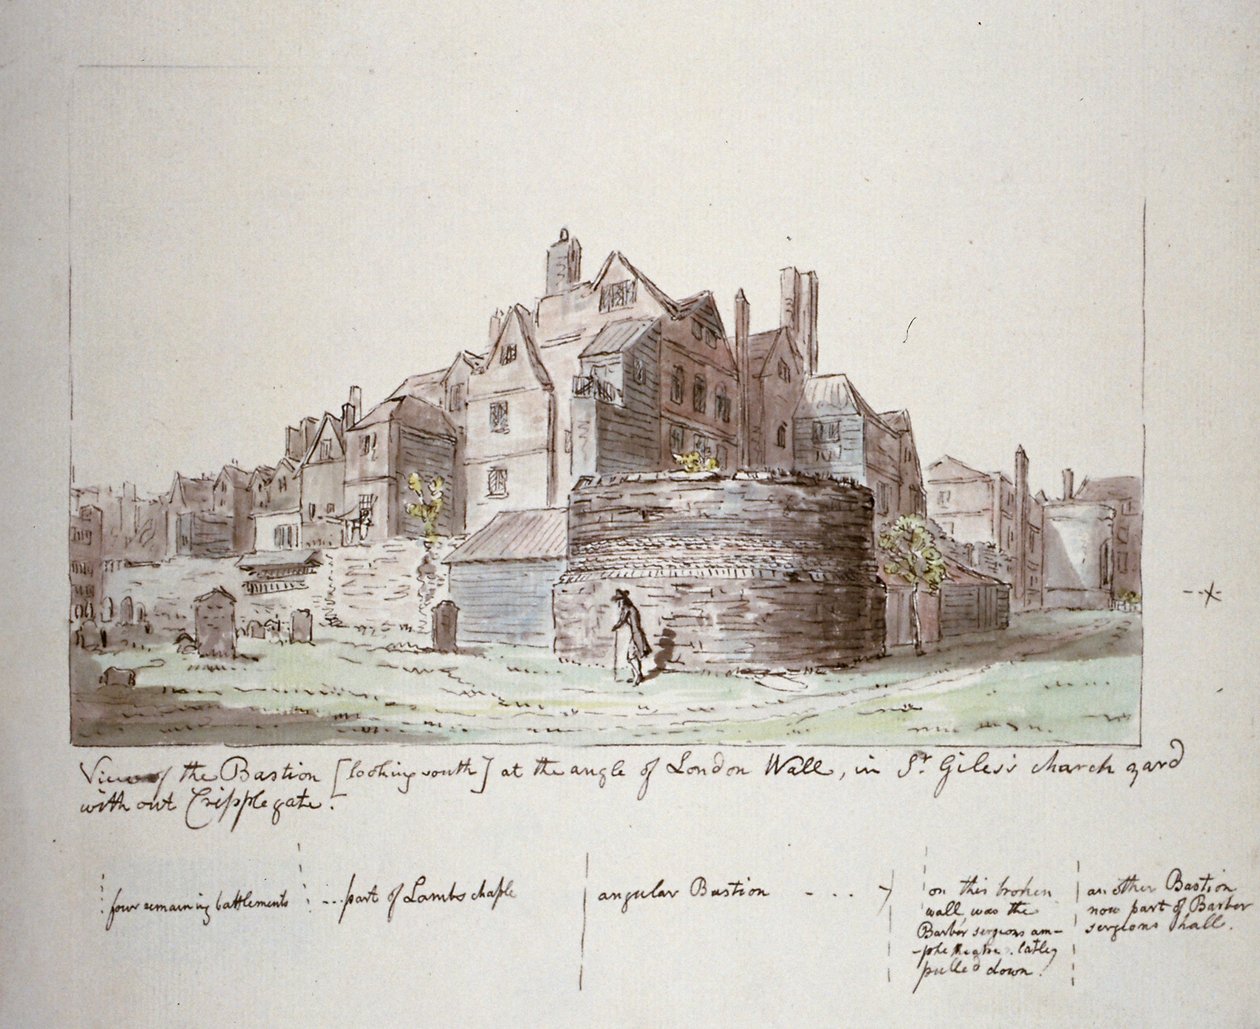 View of the Bastion [looking south] at the angle of London Wall, in St. Giles's church yard
without Cripplegate.
four remaining battlements
...part of Lambs chaple
angular Bastion - . . .
on this broken
wall, was the
Barber sergions am-
-phe theatre. latley
pulled down.
an other Bastion
now part of Barber
sergions hall.